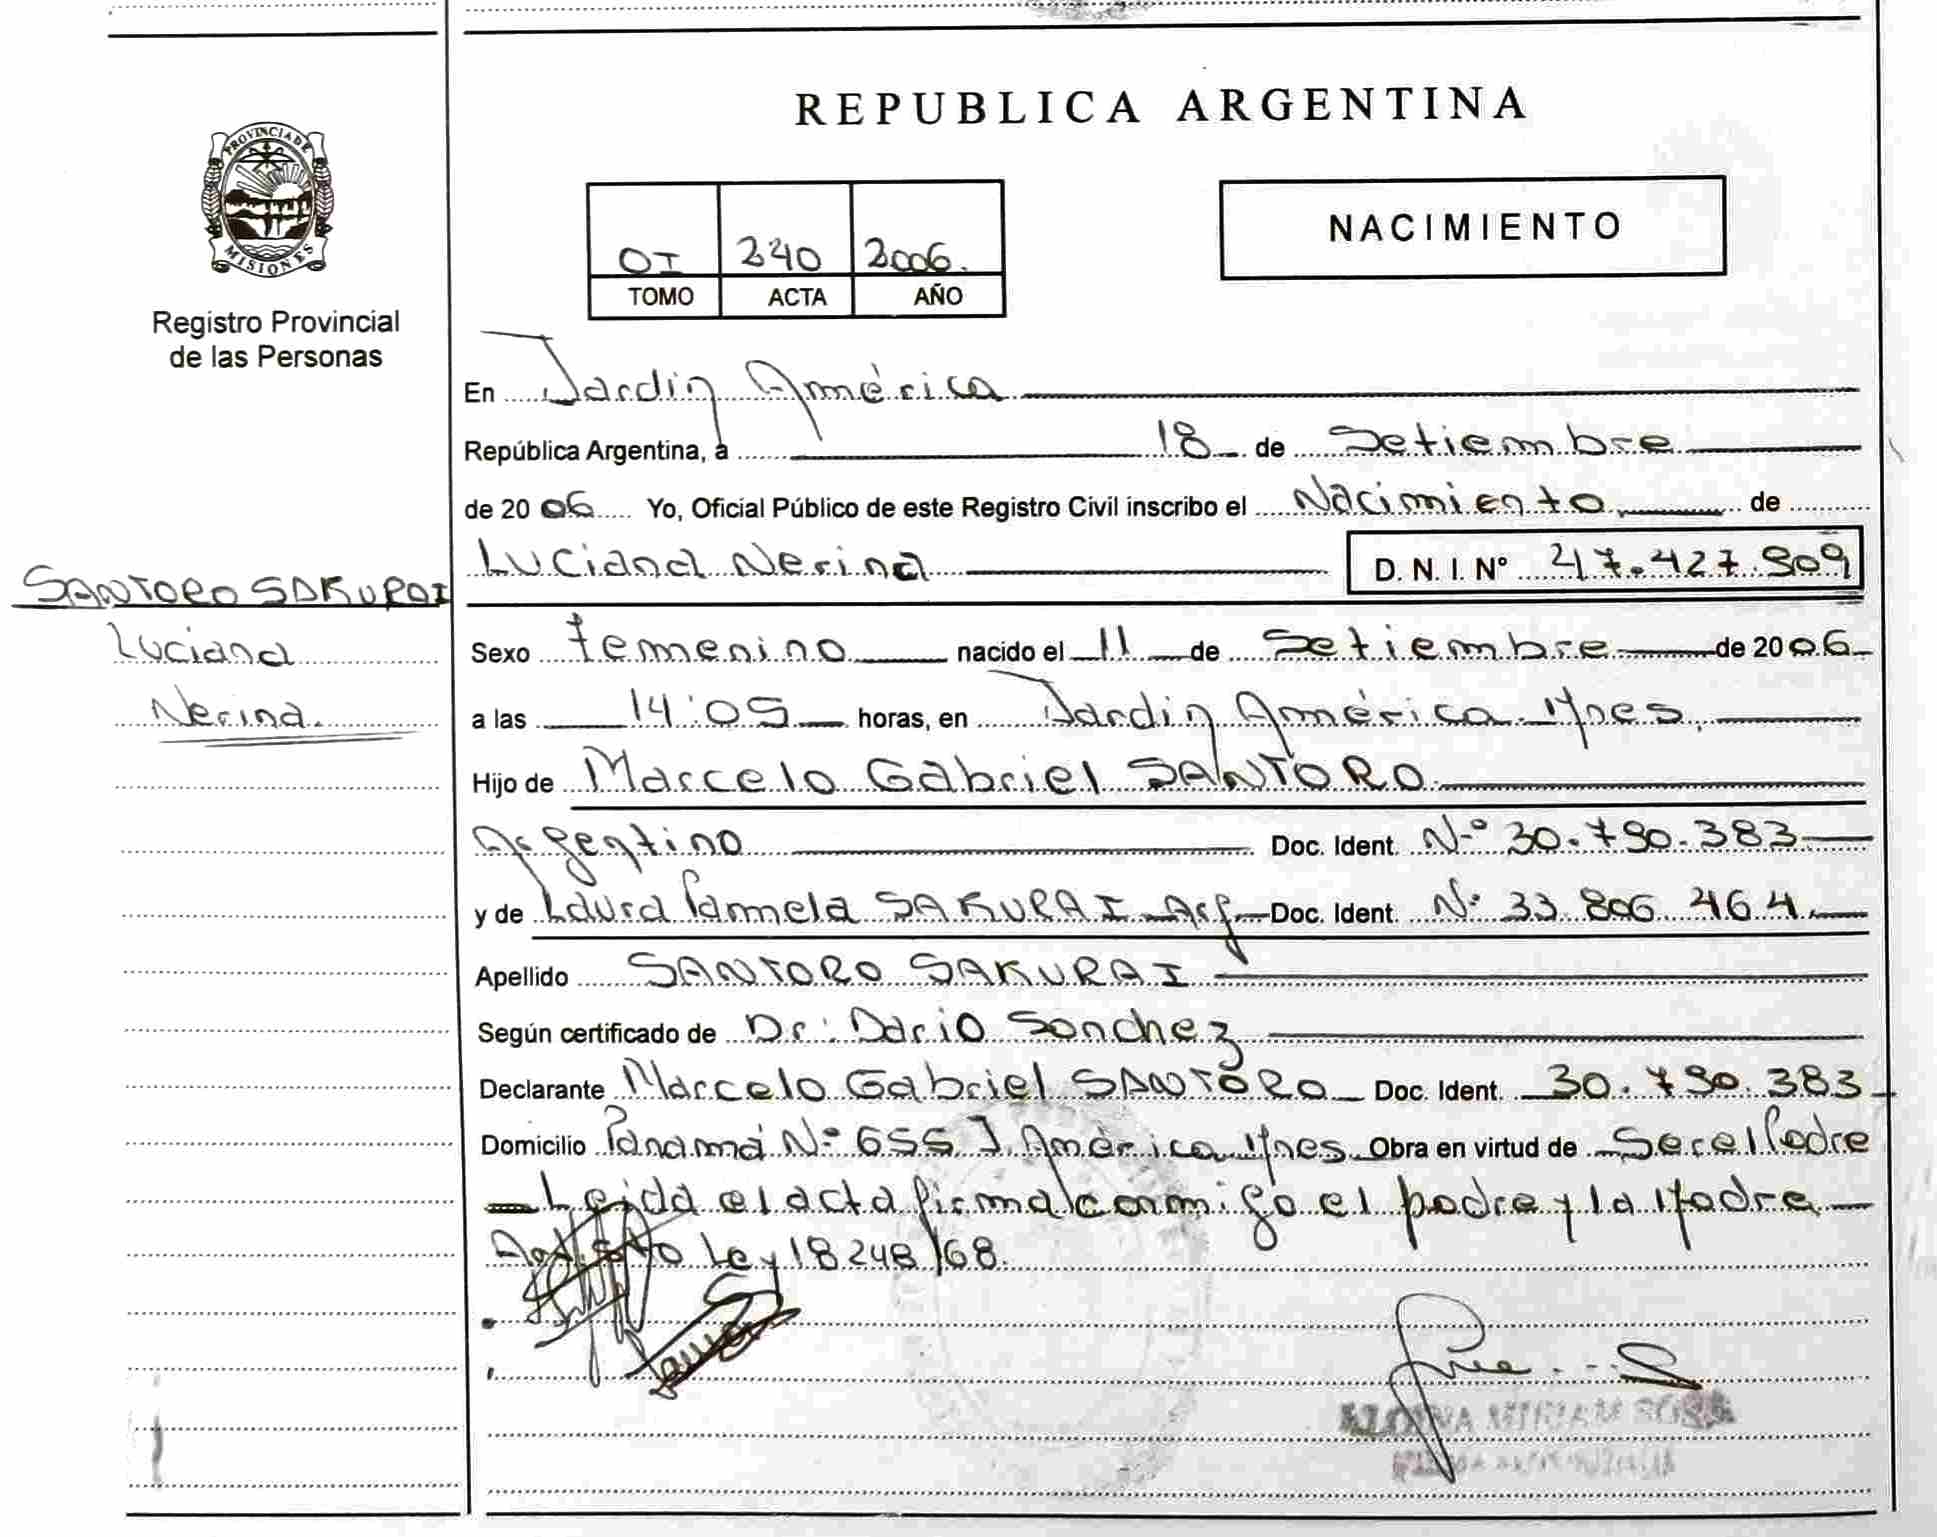 REPUBLICA ARGENTINA
PROVINCIA DE
MISIONES
Registro Provincial
de las Personas
NACIMIENTO
OI 240 2006.
TOMO ACTA AÑO
En Jardin América
República Argentina, a 18 de Setiembre
de 2006 Yo, Oficial Público de este Registro Civil inscribo el Nacimiento de
Luciana Nerina D. N. I. Nº 47.427.909
SANTORO SAKURAI
Luciana
Nerina.
Sexo femenino nacido el 11 de Setiembre de 2006
a las 14:05 horas, en Jardin América Mnes,
Hijo de Marcelo Gabriel SANTORO
Argentino Doc. Ident. Nº 30.790.383
y de Laura Pamela SAKURAI Arg Doc. Ident. Nº 33.806.464
Apellido SANTORO SAKURAI
Según certificado de Dr: Dario Sanchez
Declarante Marcelo Gabriel SANTORO Doc. Ident. 30.790.383
Domicilio Panamá Nº 655 J. América Mnes Obra en virtud de Ser el Padre
Leida el acta firma conmigo el padre y la Madre
Ley 18248/68.